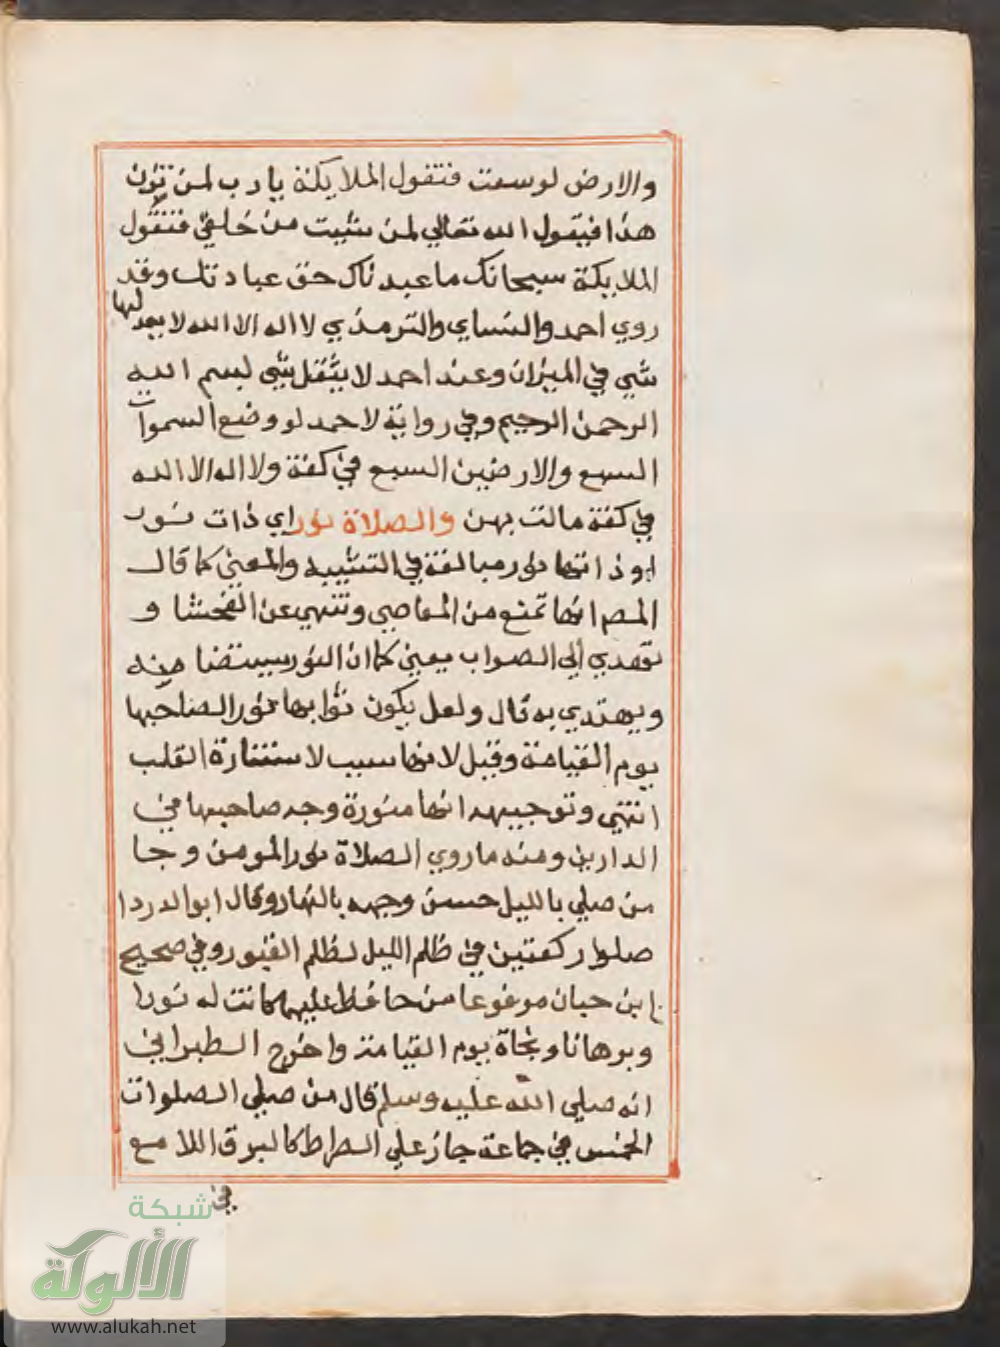 والارض لوسعت فتقول الملايكة يا رب لمن تزن
هذا فيقول الله تعالي لمن شئت من خلقي فتقول
الملايكة سبحانك ما عبدناك حق عبادتك وقد
روي احمد والنساي والترمذي لا اله الا الله لا يعدلها
شي في الميزان وعند احمد لا يثقل شي لبسم الله
الرحمن الرحيم وفي رواية لاحمد لو وضع السموات
السبع والارضين السبع في كفة ولا اله الا الله
في كفة مالت بهن والصلاة نور اي ذات نور
او ذاتها نور مبالغة في التشبيه والمعني كما قال
المصم انها تمنع من المعاصي وتنهي عن الفحشا و
تهدي الي الصواب يعني كما ان النور يستضا منه
ويهتدي به قال ولعل يكون ثوابها نور الصاحبها
يوم القيامة وقيل لانها سبب لاستنارة القلب
انتهي وتوجيهه انها منورة وجه صاحبها في
الدارين ومنه ما روي الصلاة نور المومن وجا
من صلي بالليل حسن وجهه بالنهار وقال ابو الدردا
صلوا ركعتين في ظلم الليل لظلم القبور وفي صحيح
ابن حبان موفوعا من حافظ عليها كانت له نورا
وبرهانا ونجاة يوم القيامة واخرج الطبراني
انه صلي الله عليه وسلم قال من صلي الصلوات
الخمس في جماعة جاز علي الصراط كالبرق اللامع
في
شبكة
الألوكة
www.alukah.net